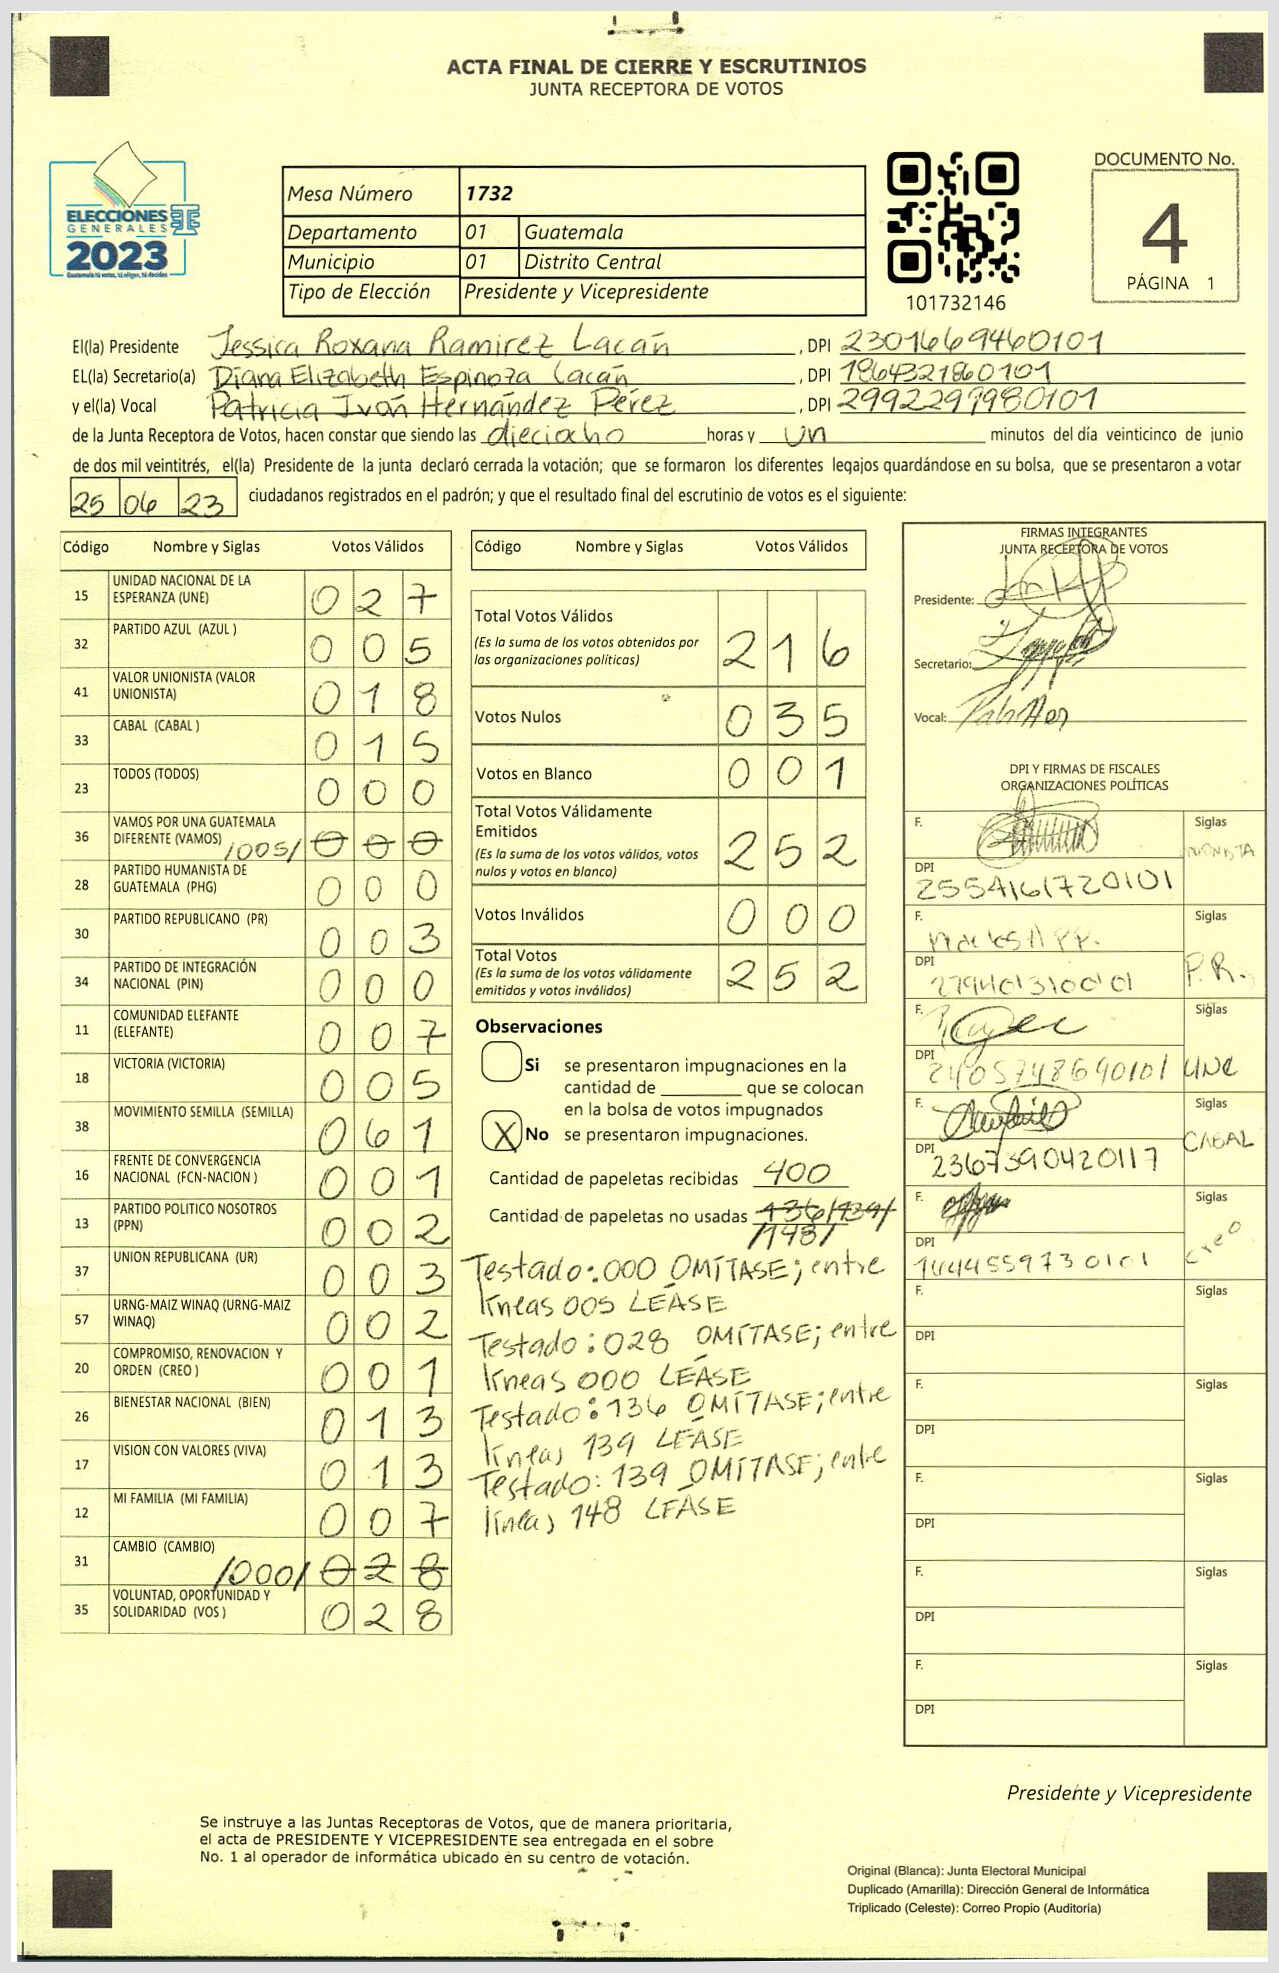 ACTA FINAL DE CIERRE Y ESCRUTINIOS
JUNTA RECEPTORA DE VOTOS
ELECCIONES
GENERALES
2023
Mesa Número 1732
Departamento 01 Guatemala
Municipio 01 Distrito Central
Tipo de Elección Presidente y Vicepresidente
101732146
DOCUMENTO No.
4
PÁGINA 1
El(la) Presidente Jessica Roxana Ramirez Lacán, DPI 2301669460101
EL(la) Secretario(a) Diana Elizabeth Espinoza Lacán, DPI 1864321860101
y el(la) Vocal Patricia Iván Hernández Pérez, DPI 2992299980101
de la Junta Receptora de Votos, hacen constar que siendo las dieciocho horas y un minutos del día veinticinco de junio
de dos mil veintitrés, el(la) Presidente de la junta declaró cerrada la votación; que se formaron los diferentes legajos guardándose en su bolsa, que se presentaron a votar
25 06 23 ciudadanos registrados en el padrón; y que el resultado final del escrutinio de votos es el siguiente:
Código Nombre y Siglas Votos Válidos
15 UNIDAD NACIONAL DE LA ESPERANZA (UNE) 027
32 PARTIDO AZUL (AZUL ) 005
41 VALOR UNIONISTA (VALOR UNIONISTA) 018
33 CABAL (CABAL ) 015
23 TODOS (TODOS) 000
36 VAMOS POR UNA GUATEMALA DIFERENTE (VAMOS) /005/ 000
28 PARTIDO HUMANISTA DE GUATEMALA (PHG) 000
30 PARTIDO REPUBLICANO (PR) 003
34 PARTIDO DE INTEGRACIÓN NACIONAL (PIN) 000
11 COMUNIDAD ELEFANTE (ELEFANTE) 007
18 VICTORIA (VICTORIA) 005
38 MOVIMIENTO SEMILLA (SEMILLA) 061
16 FRENTE DE CONVERGENCIA NACIONAL (FCN-NACION ) 001
13 PARTIDO POLITICO NOSOTROS (PPN) 002
37 UNION REPUBLICANA (UR) 003
57 URNG-MAIZ WINAQ (URNG-MAIZ WINAQ) 002
20 COMPROMISO, RENOVACION Y ORDEN (CREO ) 001
26 BIENESTAR NACIONAL (BIEN) 013
17 VISION CON VALORES (VIVA) 013
12 MI FAMILIA (MI FAMILIA) 007
31 CAMBIO (CAMBIO) /000/ 028
35 VOLUNTAD, OPORTUNIDAD Y SOLIDARIDAD (VOS ) 028
Código Nombre y Siglas Votos Válidos
Total Votos Válidos 216
(Es la suma de los votos obtenidos por
las organizaciones políticas)
Votos Nulos 035
Votos en Blanco 001
Total Votos Válidamente
Emitidos 252
(Es la suma de los votos válidos, votos
nulos y votos en blanco)
Votos Inválidos 000
Total Votos 252
(Es la suma de los votos válidamente
emitidos y votos inválidos)
Observaciones
Si se presentaron impugnaciones en la
cantidad de ________ que se colocan
en la bolsa de votos impugnados
X No se presentaron impugnaciones.
Cantidad de papeletas recibidas 400
Cantidad de papeletas no usadas 136/139/
/148/
Testado: 000 OMÍTASE; entre
líneas 005 LÉASE
Testado: 028 OMÍTASE; entre
líneas 000 LÉASE
Testado: 136 OMÍTASE; entre
líneas 139 LÉASE
Testado: 139 OMÍTASE; entre
líneas 148 LÉASE
FIRMAS INTEGRANTES
JUNTA RECEPTORA DE VOTOS
Presidente:
Secretario:
Vocal:
DPI Y FIRMAS DE FISCALES
ORGANIZACIONES POLÍTICAS
F. Siglas
UNIONISTA
DPI
2554161720101
F. Siglas
DPI P.R.
F. Siglas
DPI
2405748640101 UNE
F. Siglas
DPI CABAL
2367390420117
F. Siglas
DPI creo
1444559730101
F. Siglas
DPI
F. Siglas
DPI
F. Siglas
DPI
F. Siglas
DPI
F. Siglas
DPI
Presidente y Vicepresidente
Se instruye a las Juntas Receptoras de Votos, que de manera prioritaria,
el acta de PRESIDENTE Y VICEPRESIDENTE sea entregada en el sobre
No. 1 al operador de informática ubicado en su centro de votación.
Original (Blanca): Junta Electoral Municipal
Duplicado (Amarilla): Dirección General de Informática
Triplicado (Celeste): Correo Propio (Auditoría)